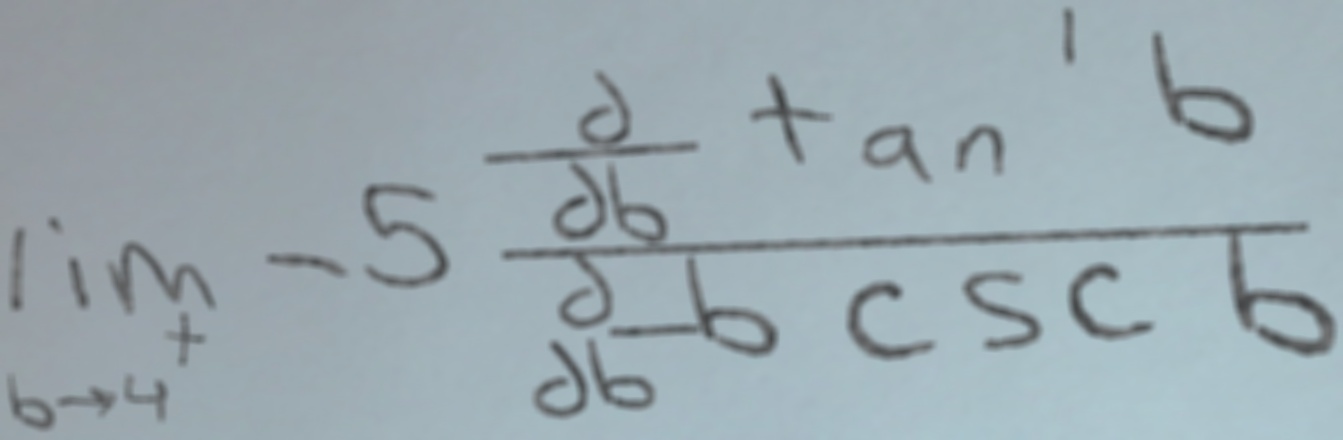 \lim_{b \to 4^+} -5 \frac{\frac{d}{db} \tan^{1} b}{\frac{d}{db} b \csc b}